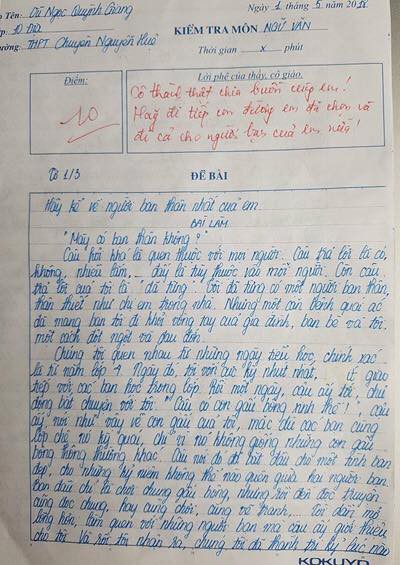 Tên: Vũ Ngọc Quỳnh Giang
Ngày 1 tháng 5 năm 20
Lớp: 10 Địa
KIỂM TRA MÔN NGỮ VĂN
Trường: THPT Chuyên Nguyễn Huệ
Thời gian x phút
Điểm:
Lời phê của thầy, cô giáo
10
Cô thành thật chia buồn cùng em!
Hãy đi tiếp con đường em đã chọn và
đi cả cho người bạn của em nữa!
Tờ 1/3
ĐỀ BÀI
Hãy kể về người bạn thân nhất của em
BÀI LÀM
"Mày có bạn thân không?"
Câu hỏi khá là quen thuộc với mọi người. Câu trả lời là có,
không, nhiều lắm,... đấy là tùy thuộc vào mỗi người. Còn câu
trả lời của tôi là "đã từng". Tôi đã từng có một người bạn thân,
thân thiết như chị em trong nhà. Nhưng một căn bệnh quái ác
đã mang bạn tôi đi khỏi vòng tay của gia đình, bạn bè và tôi
một cách đột ngột và đau đớn.
Chúng tôi quen nhau từ những ngày tiểu học, chính xác
là từ năm lớp 4. Ngày đó, tôi vốn cực kỳ nhút nhát, ít giao
tiếp với các bạn học trong lớp. Rồi một ngày, cậu ấy tới, chủ
động bắt chuyện với tôi: "Cậu có con gấu bông xinh thế!", cậu
ấy nói như vậy về con gấu của tôi, mặc dù các bạn cùng
lớp chê nó kỳ quái, chỉ vì nó không giống những con gấu
bông thông thường khác. Câu nói đó đã bắt đầu cho một tình bạn
đẹp, cho những kỷ niệm không thể nào quên giữa hai người bạn.
Ban đầu chỉ là chơi chung gấu bông, nhưng rồi đến đọc truyện
cũng đọc chung, hay cùng chơi, cùng vẽ tranh,... Tôi dần mở
lòng hơn, làm quen với những người bạn mà cậu ấy giới thiệu
cho tôi. Và rồi tôi nhận ra, chúng tôi đã thành tri kỷ lúc nào
KOKUYO